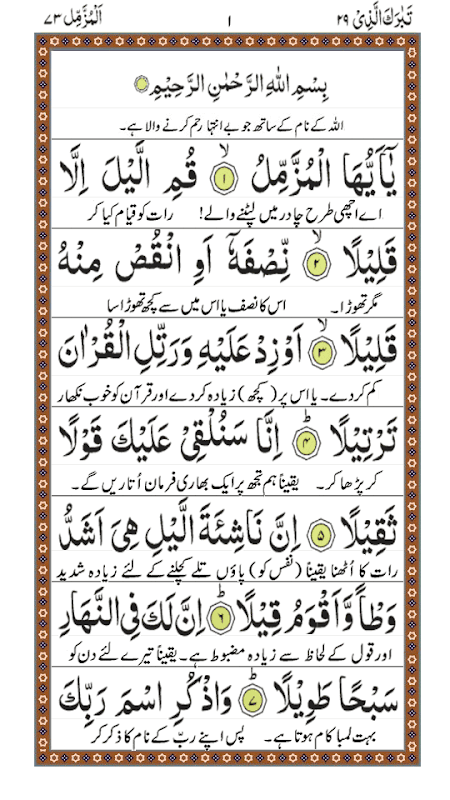 تَبٰرَكَ الَّذِیْ ۲۹ ۱ اَلْمُزَّمِّل ۷۳
بِسْمِ اللهِ الرَّحْمٰنِ الرَّحِیْمِ
اللہ کے نام کے ساتھ جو بے انتہا رحم کرنے والا ہے۔
یٰۤاَیُّهَا الْمُزَّمِّلُ ۙ۱ قُمِ الَّیْلَ اِلَّا
اے اچھی طرح چادر میں لپٹنے والے! رات کو قیام کیا کر
قَلِیْلًا ۙ۲ نِّصْفَهٗۤ اَوِ انْقُصْ مِنْهُ
مگر تھوڑا۔ اس کا نصف یا اس میں سے کچھ تھوڑا سا
قَلِیْلًا ۙ۳ اَوْ زِدْ عَلَیْهِ وَرَتِّلِ الْقُرْاٰنَ
کم کر دے۔ یا اس پر (کچھ) زیادہ کر دے اور قرآن کو خوب نکھار
تَرْتِیْلًا ؕ۴ اِنَّا سَنُلْقِیْ عَلَیْكَ قَوْلًا
کر پڑھا کر۔ یقیناً ہم تجھ پر ایک بھاری فرمان اُتاریں گے۔
ثَقِیْلًا ۵ اِنَّ نَاشِئَةَ الَّیْلِ هِیَ اَشَدُّ
رات کا اُٹھنا یقیناً (نفس کو) پاؤں تلے کچلنے کے لئے زیادہ شدید
وَطْاً وَّاَقْوَمُ قِیْلًا ؕ۶ اِنَّ لَكَ فِی النَّهَارِ
اور قول کے لحاظ سے زیادہ مضبوط ہے۔ یقیناً تیرے لئے دن کو
سَبْحًا طَوِیْلًا ؕ۷ وَاذْكُرِ اسْمَ رَبِّكَ
بہت لمبا کام ہوتا ہے۔ پس اپنے ربّ کے نام کا ذکر کر